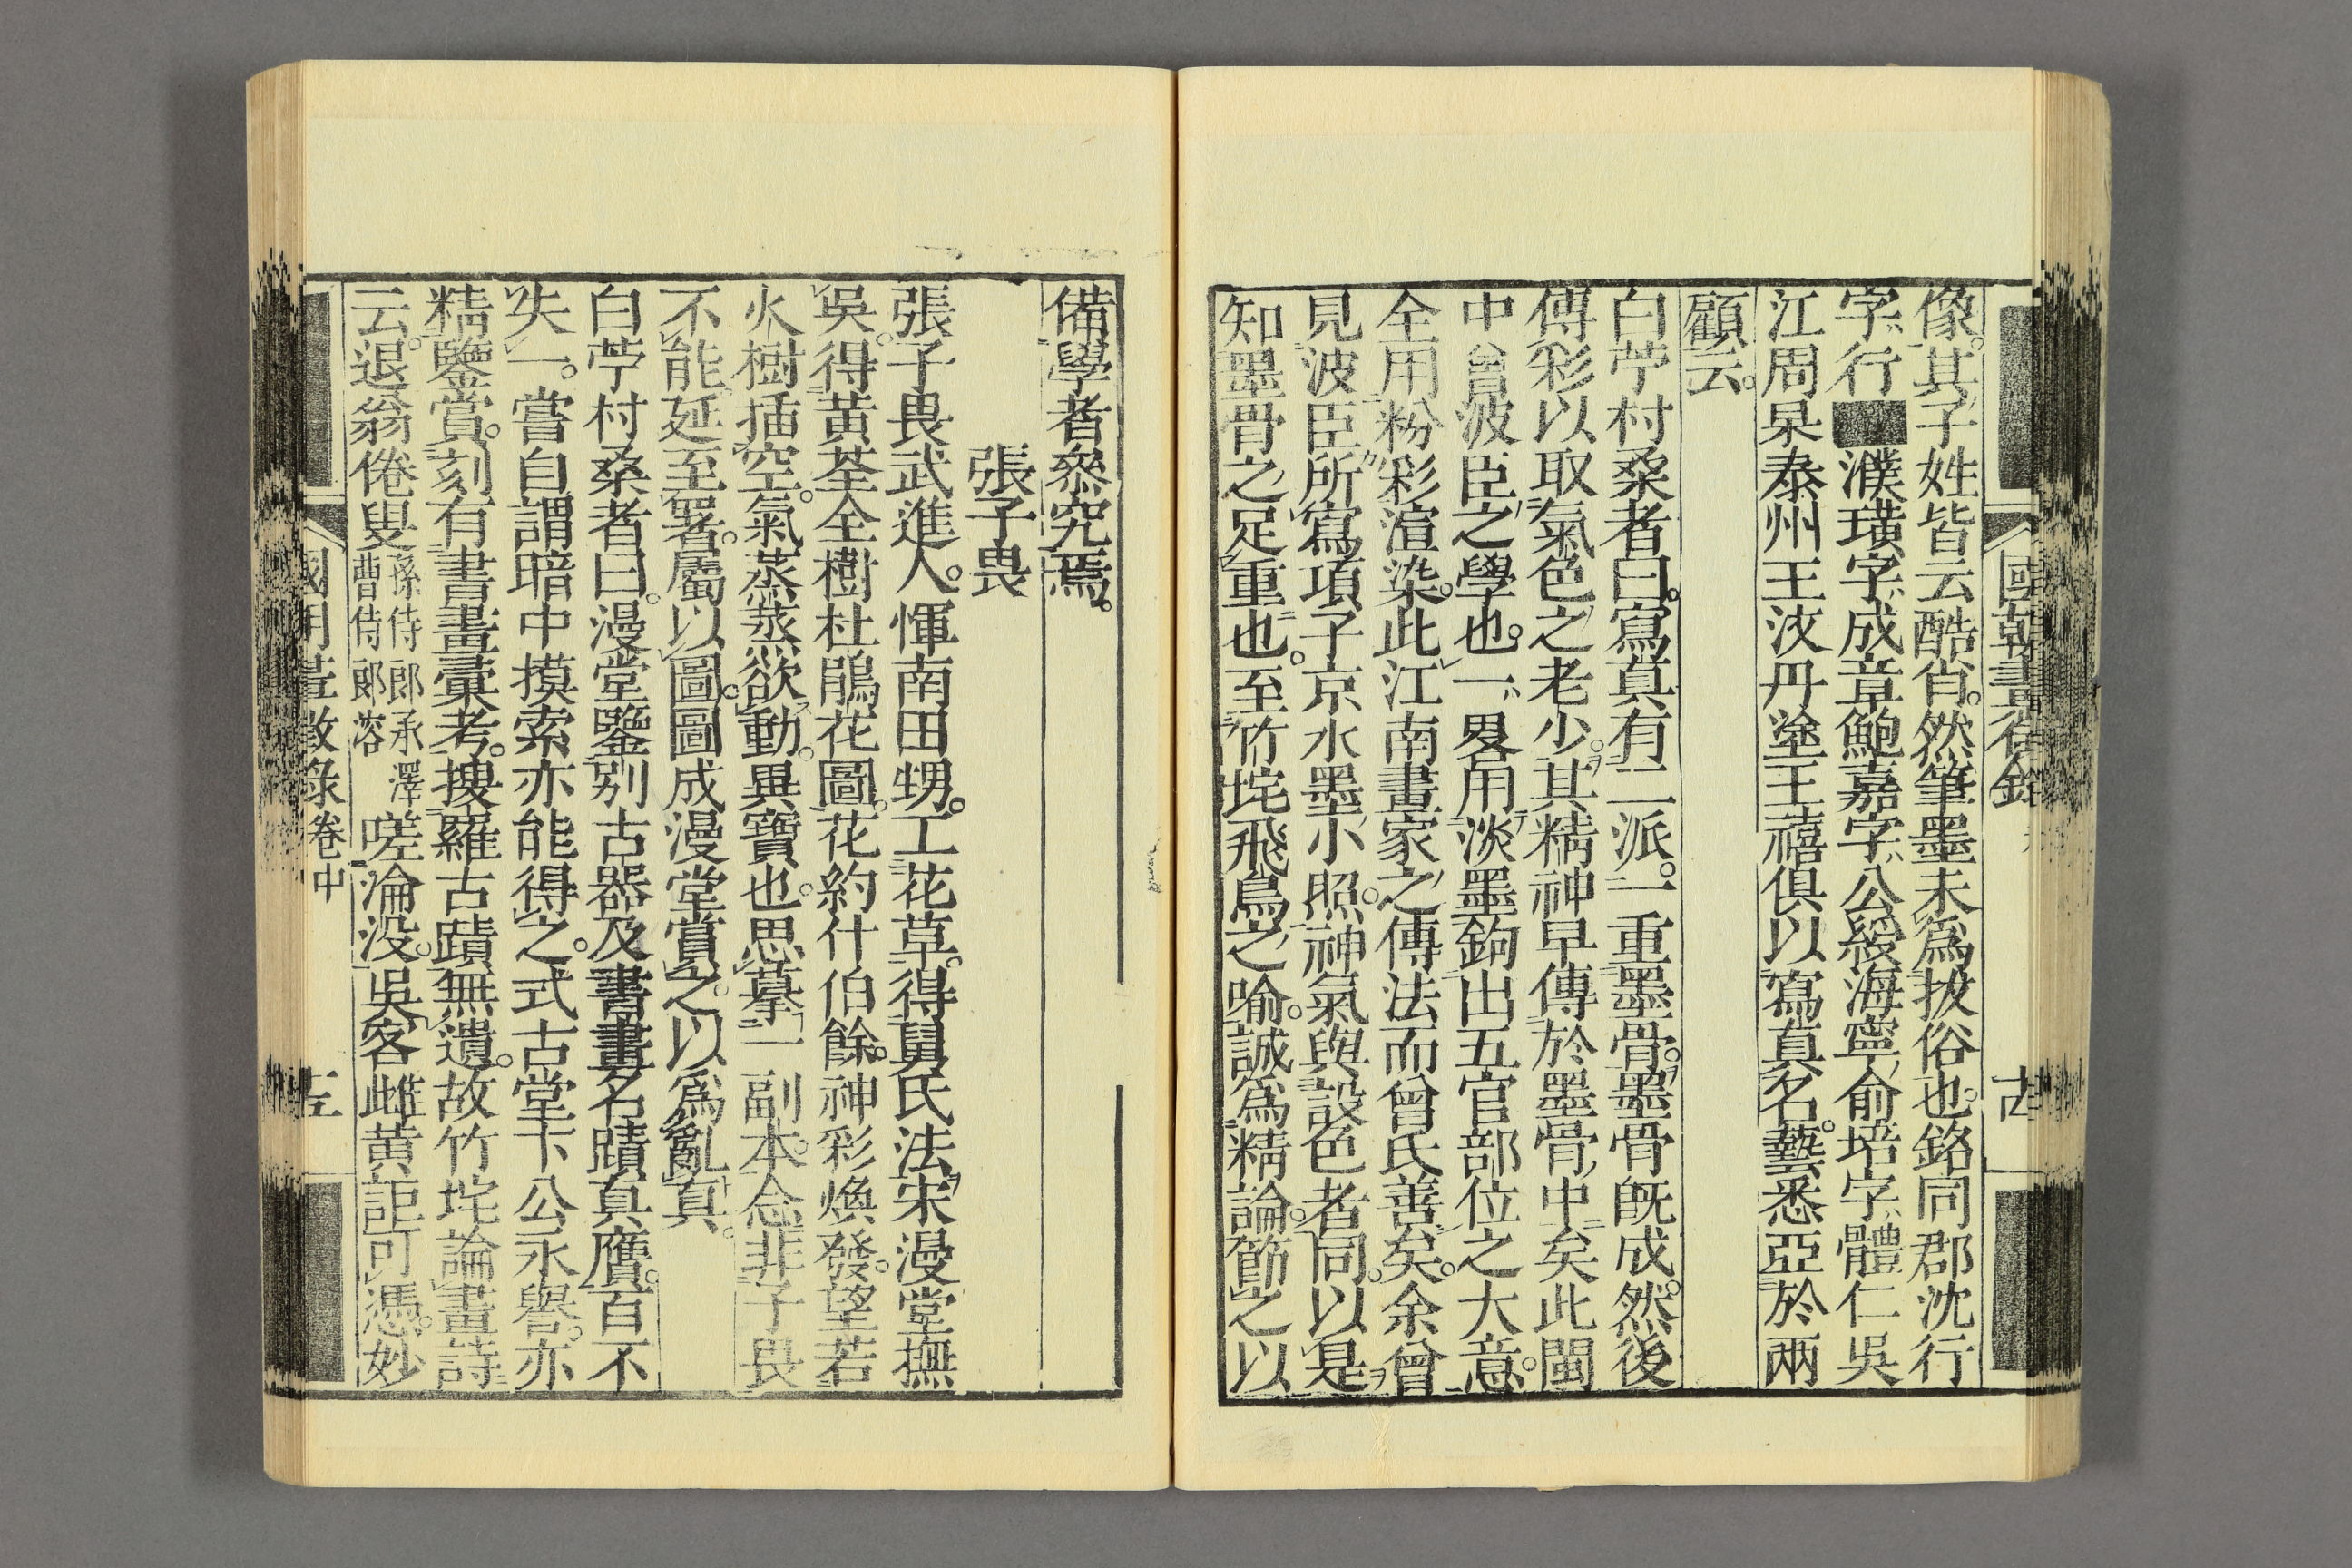 國朝畫徵録
像其子姓皆云酷肖然筆墨未爲拔俗也銘同郡沈行
字行濮璜字成章鮑嘉字公綬海寧俞培字體仁吳
江周杲泰州王汝丹塗王禧俱以寫真名藝悉亞於兩
顧云
白苧村桑者曰寫真有二派一重墨骨墨骨既成然後
傅彩以取氣色之老少其精神早傳於墨骨中矣此閩
中曾波臣之學也一畧用淡墨鉤出五官部位之大意
全用粉彩渲染此江南畫家之傳法而曾氏善矣余曾
見波臣所寫項子京水墨小照神氣與設色者同以是
知墨骨之足重也至竹垞飛鳥之喻誠爲精論節之以
備學者叅究焉
張子畏
張子畏武進人惲南田甥工花草得舅氏法宋漫堂撫
吳得黃荃全樹杜鵑花圖花約什伯餘神彩煥發望若
火樹插空氣蒸蒸欲動異寶也思摹一副本念非子畏
不能延至署屬以圖圖成漫堂賞之以爲亂真
白苧村桑者曰漫堂鑒别古器及書畫名蹟真贗百不
失一嘗自謂暗中摸索亦能得之式古堂卞公永譽亦
精鑒賞刻有書畫彙考搜羅古蹟無遺故竹垞論畫詩
云退翁倦叟孫侍郎承澤曹侍郎溶嗟淪没吳客雌黃詎可憑妙
國朝畫徵録卷中